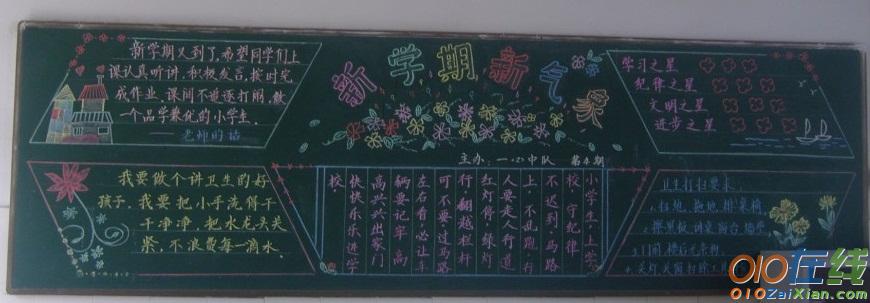 新学期又到了,希望同学们上
课认真听讲,积极发言,按时完
成作业,课间不追逐打闹,做
一个品学兼优的小学生.
——老师的话
新学期新气象
主办:一(2)中队 第1期
学习之星
纪律之星
文明之星
进步之星
我要做个讲卫生的好
孩子,我要把小手洗得干
干净净,把水龙头关
紧,不浪费每一滴水.
小学生,上学
校,守纪律
不迟到,马路
上,不乱跑,行
人要走人行道
红灯停,绿灯
行,翻越栏杆
可不要,过马路
左右看,必让车
辆要记牢,高
高兴兴出家门
快快乐乐进学
校
卫生打扫要求:
1.扫地,拖地,排桌椅
2.擦黑板,讲桌,窗台,墙壁
3.门前,楼后无杂物
4.关灯,关窗,打除工具
010在线
010ZaiXian.com